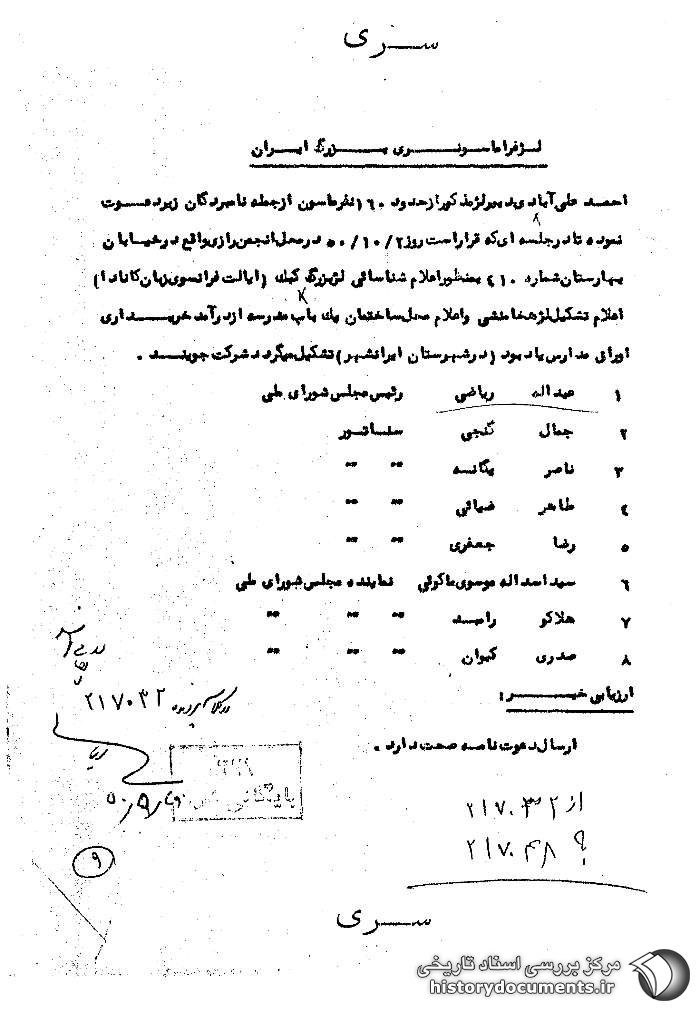 سری
لژ فراماسونری بزرگ ایران
احمد علی‌آبادی دبیر لژ مذکور از حدود ۱۶۰ نفر ماسون از جمله نامبردگان زیر دعوت
نموده تا در جلسه ای که قرار است روز ۵۰/۱۰/۲ در محل انجمن رازی واقع در خیابان
بهارستان شماره ۴۱۰ بمنظور اعلام شناسائی لژ بزرگ کبک (ایالت فرانسوی زبان کانادا)
اعلام تشکیل لژ هخامنشی و اعلام محل ساختمان یک باب مدرسه از درآمد خریداری
اوراق مدارس یادبود (در شهرستان ایرانشهر) تشکیل میگردد شرکت جویند.
۱ عبداله ریاضی رئیس مجلس شورای ملی
۲ جمال گنجی سناتور
۳ ناصر یگانه " "
۴ طاهر ضیائی " "
۵ رضا جعفری " "
۶ سید اسداله موسوی ماکوئی نماینده مجلس شورای ملی
۷ هلاکو رامبد " " "
۸ صدری کیوان " " "
ارزیابی خبر:
ارسال دعوت نامه صحت دارد.
۲۱۷۰۳۲
بایگانی
از ۲۱۷۰۳۲
۲۱۷۰۴۸
۹
سری
مرکز بررسی اسناد تاریخی
historydocuments.ir